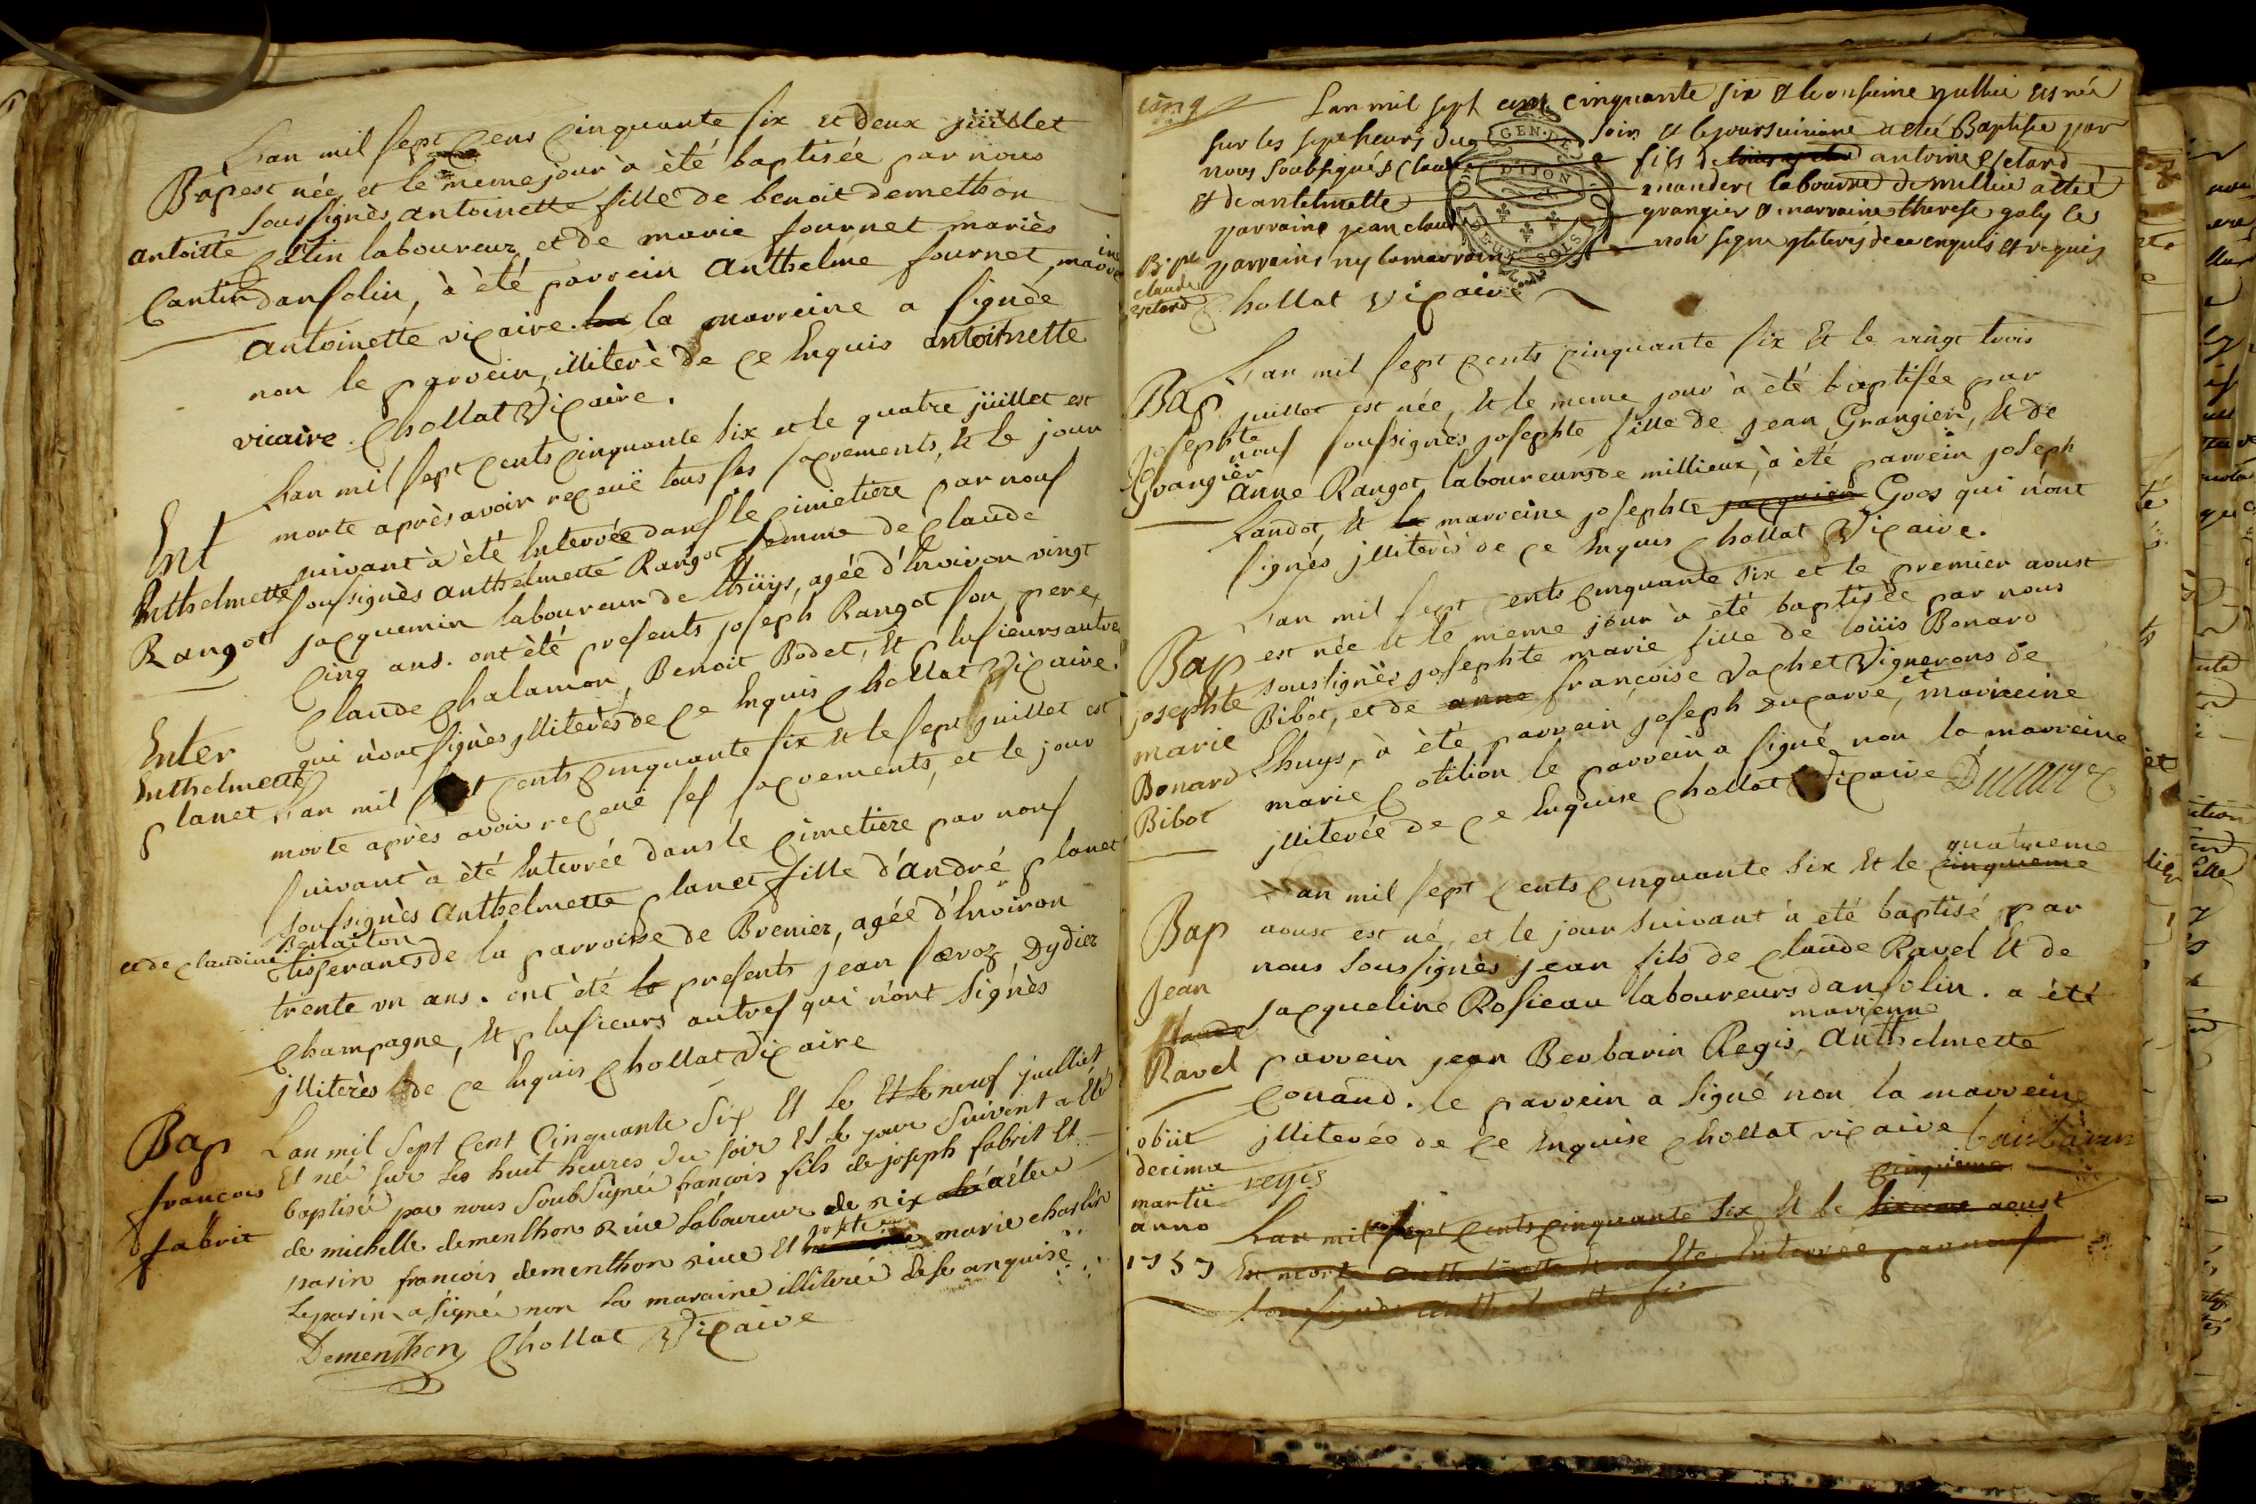 Lan mil sept cens cinquante six et deux juillet
Bap est née, et le meme jour à èté baptisée par nous
soussignès antoinette fille de benoit demethon
antoitte catin laboureur, et de marie fournet mariès
Cantin dansolin, à èté parrein Anthelme fournet, marreine
antoinette vicaire. la marreine a signèe
non le parrein, illiterè de ce Enquis antoinette
vicaire. Chollat Vicaire.
Lan mil sept cents cinquante six et le quatre juillet est
Ent morte après avoir reçeuë tous ses sacrements, Et le jour
suivant à èté Enterrée dans le cimetiere par nous
Anthelmette soussignès anthelmette Rangot femme de claude
Rangot jacquemin laboureur de thuys, agée d'Environ vingt
cinq ans. ont èté presents joseph Rangot son pere,
claude chalamon, Benoit Bodet, Et plusieurs autres
qui n'ont signès jlliterès de ce Enquis Chollat Vicaire.
Enter
Anthelmette
planet Lan mil sept cents cinquante six Et le sept juillet est
morte après avoir reçeuë ses sacrements, et le jour
suivant à èté Enterrée dans le cimetiere par nous
soussignès anthelmette planet fille d'andré planet
et de claudine Benaiton
tisserants de la parroisse de Brenier, agée d'Environ
trente un ans. ont èté presents jean Dydier
Champagne, Et plusieurs autres qui n'ont signès
jlliterès de ce Enquis Chollat Vicaire
Bap Lan mil sept Cent Cinquante Six Et le Et le neuf juillet
Et né sur les huit heures du soir Et le jour Suivent a Eté
francois baptisé par nous SoubSigné francois fils de joseph fabrit Et
fabrit de michelle dementhon Laboureur de a été
parin francois dementhon Et marie charlin
Le parin a signé non La maraine illiterée de se anquise
Dementhon Chollat Vicaire
cinq Lan mil sept cent cinquante six & le onsieme jullie es né
sur les sept heurs du soir & le jour suivant a eté Baptise par
nous soubsignés Claude fils de antoine
& de antelmette laboureur de millieu a été
parrain jean claude grangier & marraine therese goly les
Bap parrains ny la marraine non signe de ce enquis & requis
claude
Chollat Vicaire
Lan mil sept cents cinquante six Et le vingt trois
Bap juillet est née, Et le meme jour à èté baptisée par
Josephte nous soussignès josephte fille de jean Grangier, Et de
Grangier Anne Rangot laboureurs de millieux, à èté parrein joseph
Landot, Et marreine josephte jacquier Goos qui n'ont
signès jlliterès de ce Enquis Chollat Vicaire.
Lan mil sept cents cinquante six et le premier aoust
Bap est née Et le meme jour à èté baptisèe par nous
josephte soussignès josephte marie fille de loüis Bonard
marie Bibot, et de anne françoise Vachet Vignerons de
Bonard Thuys, à èté parrein joseph Ducarre, et marreine
Bibot marie cotilion le parrein a signé non la marreine
jlliterée de ce Enquise Chollat Vicaire Ducarre
Lan mil sept cents cinquante six Et le cinquieme quatrieme
Bap aoust est né, et le jour suivant a eté baptisé par
nous soussignès jean fils de claude Ravel Et de
Jean jacqueline Rosseau laboureurs dansolin. a èté
claude
Ravel parrein jean Berbarin Regis, marrenne Anthelmette
Couand. le parrein a signé non la marreine
obiit jlliterée de ce Enquise Chollat vicaire barbarin
decima regis
martii
anno Lan mil sept cents cinquante six Et le sixieme cinquieme aoust
1757 Est morte Eté Enterrée par nous
soussignès anthelmette